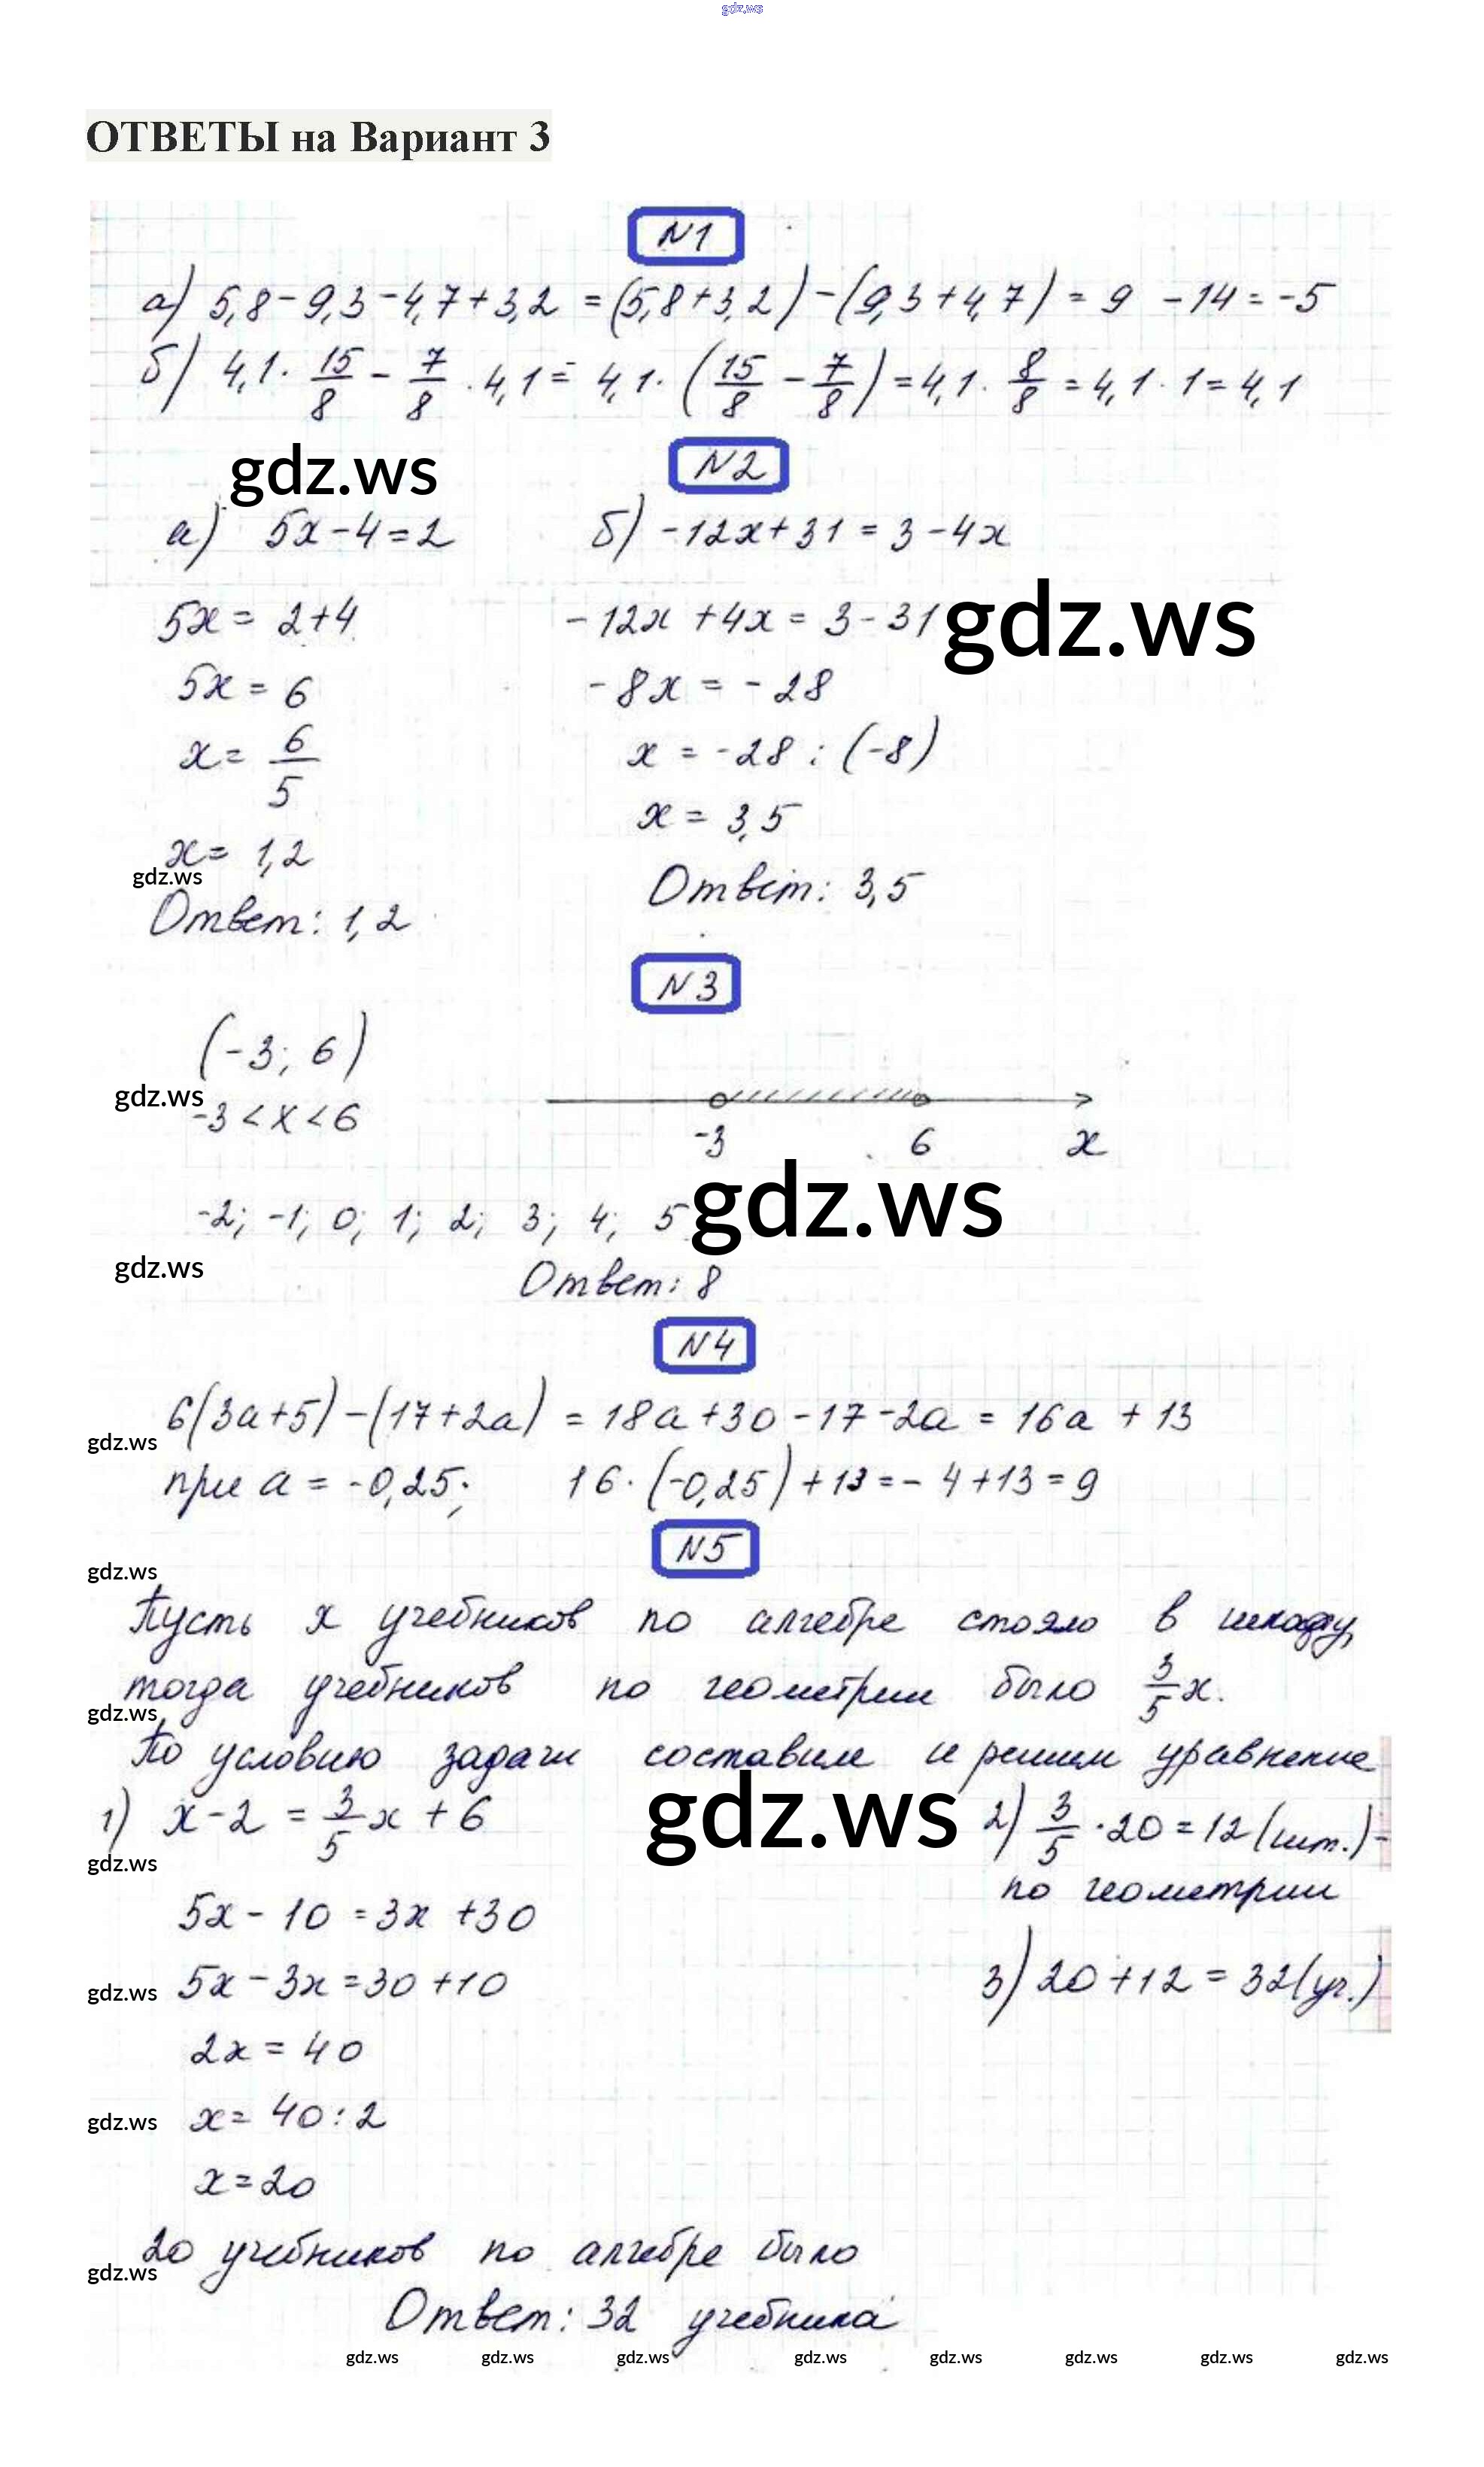 gdz.ws
ОТВЕТЫ на Вариант 3
N1
а) 5,8 - 9,3 - 4,7 + 3,2 = (5,8 + 3,2) - (9,3 + 4,7) = 9 - 14 = -5
б) 4,1 · 15/8 - 7/8 · 4,1 = 4,1 · (15/8 - 7/8) = 4,1 · 8/8 = 4,1 · 1 = 4,1
gdz.ws
N2
а) 5x - 4 = 2
б) -12x + 31 = 3 - 4x
5x = 2 + 4
-12x + 4x = 3 - 31
gdz.ws
5x = 6
-8x = -28
x = 6/5
x = -28 : (-8)
x = 1,2
x = 3,5
gdz.ws
Ответ: 1,2
Ответ: 3,5
N3
(-3; 6)
gdz.ws
-3 < x < 6
-3 6 x
-2; -1; 0; 1; 2; 3; 4; 5
gdz.ws
gdz.ws
Ответ: 8
N4
6(3a + 5) - (17 + 2a) = 18a + 30 - 17 - 2a = 16a + 13
gdz.ws
при a = -0,25; 16 · (-0,25) + 13 = -4 + 13 = 9
N5
gdz.ws
Пусть x учебников по алгебре стояло в шкафу,
тогда учебников по геометрии было 3/5 x.
gdz.ws
По условию задачи составим и решим уравнение
1) x - 2 = 3/5 x + 6
gdz.ws
2) 3/5 · 20 = 12 (шт.) -
по геометрии
gdz.ws
5x - 10 = 3x + 30
5x - 3x = 30 + 10
gdz.ws
3) 20 + 12 = 32 (уч.)
2x = 40
x = 40 : 2
gdz.ws
x = 20
20 учебников по алгебре было
gdz.ws
Ответ: 32 учебника
gdz.ws gdz.ws gdz.ws gdz.ws gdz.ws gdz.ws gdz.ws gdz.ws